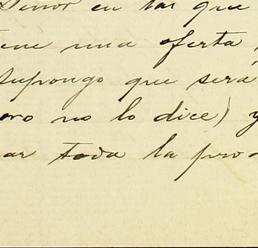 Señor en tal que
tiene una oferta,
supongo que será
pero no lo dice) y
ar toda la pro